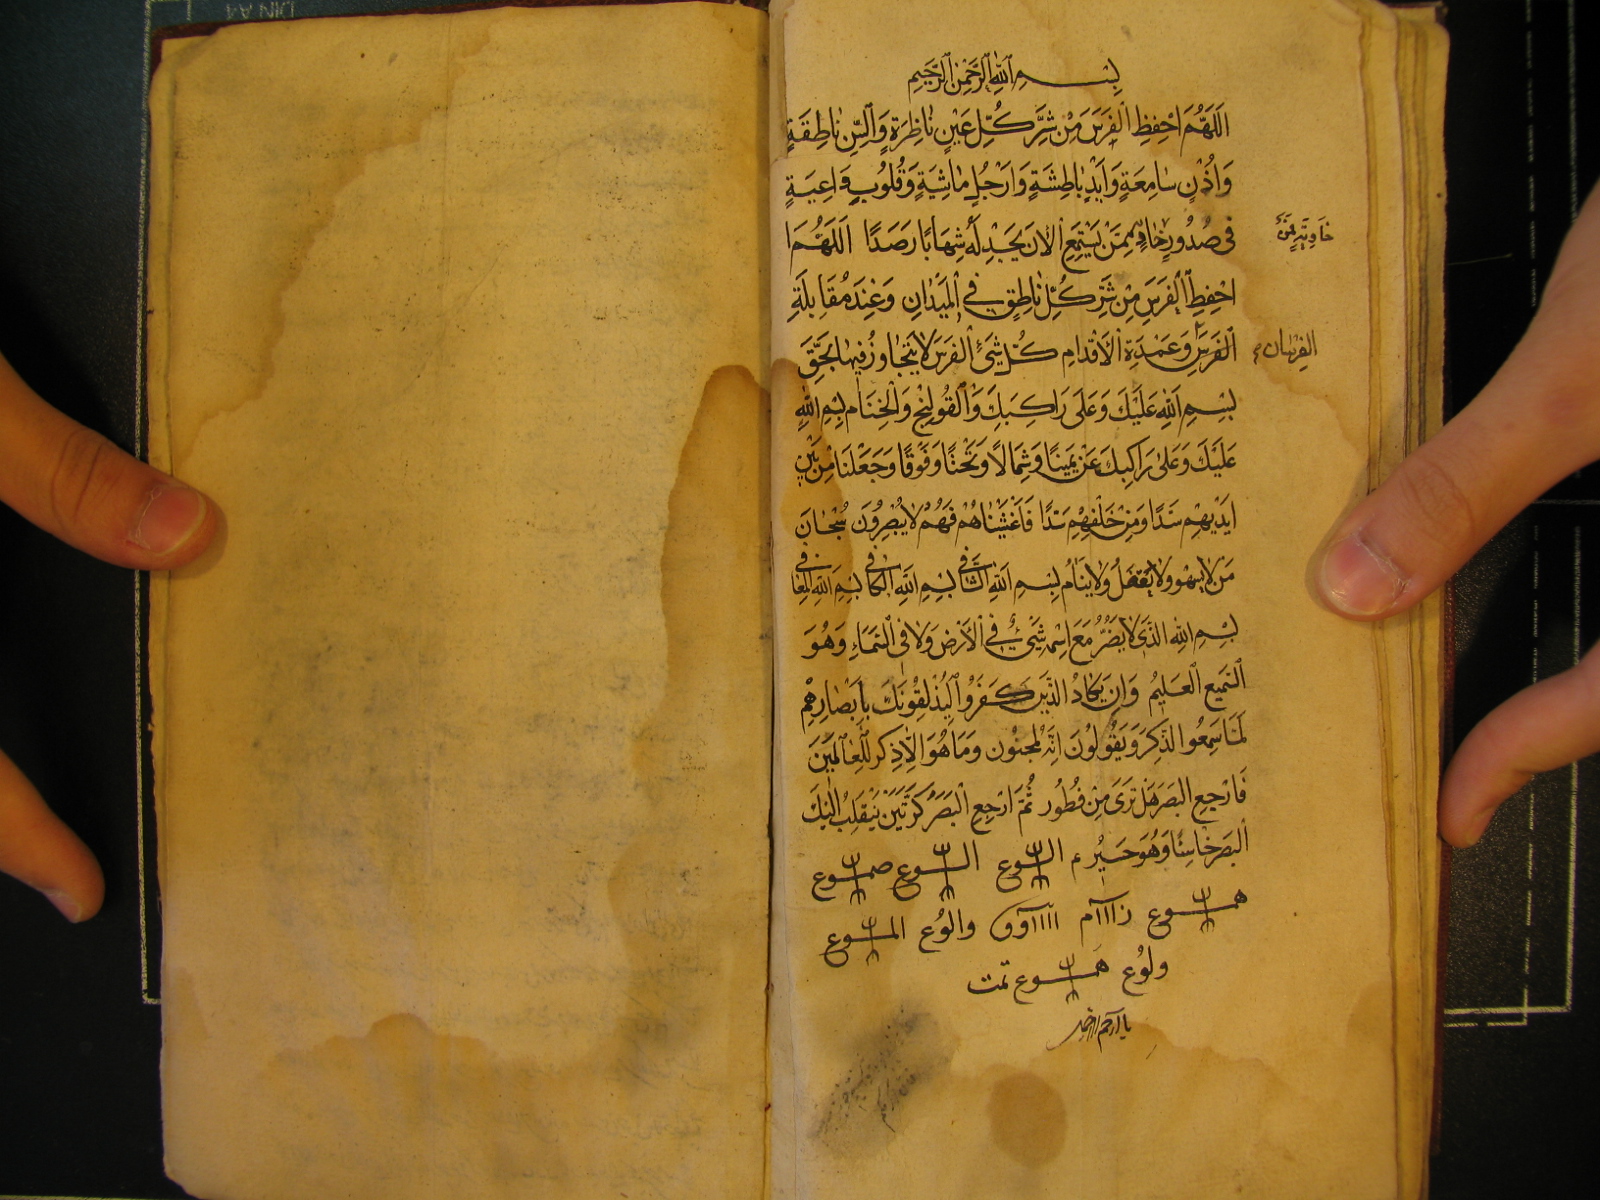 بِسْمِ اللّٰهِ الرَّحْمٰنِ الرَّحِيمِ
اَللّٰهُمَّ احْفِظِ الْفَرَسَ مِنْ شَرِّ كُلِّ عَيْنٍ نَاظِرَةٍ وَاَلْسُنٍ نَاطِقَةٍ
وَاُذُنٍ سَامِعَةٍ وَاَيْدٍ بَاطِشَةٍ وَاَرْجُلٍ مَاشِيَةٍ وَقُلُوبٍ وَاعِيَةٍ
فِى صُدُورٍ فَمَنْ يَسْتَمِعِ الْاٰنَ يَجِدْ لَهُ شِهَابًا رَصَدًا اَللّٰهُمَّ
خَاوِيَةٍ
احْفِظِ الْفَرَسَ مِنْ شَرِّ كُلِّ نَاطِقٍ فِي الْمَيْدَانِ وَعِنْدَ مُقَابَلَةِ
الْفَرَسِ وَعَمْدَةِ الْاَقْدَامِ كُلِّ شَىْءٍ الْفَرَسَ لَا يَتَجَاوَزُ فِيهَا بِحَقِّ
الفرسان
بِسْمِ اللّٰهِ عَلَيْكَ وَعَلَى رَاكِبِكَ وَالْقُولَنْجِ وَالْخِنَامِ بِسْمِ اللّٰهِ
عَلَيْكَ وَعَلَى رَاكِبِكَ عَنْ يَمِينًا وَشِمَالًا وَتَحْتًا وَفَوْقًا وَجَعَلْنَا مِنْ بَيْنِ
اَيْدِيهِمْ سَدًّا وَمِنْ خَلْفِهِمْ سَدًّا فَاَغْشَيْنَاهُمْ فَهُمْ لَا يُبْصِرُونَ سُبْحَانَ
مَنْ لَا يَسْهُو وَلَا يَغْفَلُ وَلَا يَنَامُ بِسْمِ اللّٰهِ الشَّافِى بِسْمِ اللّٰهِ الْكَافِى بِسْمِ اللّٰهِ الْمُعَافِى
بِسْمِ اللّٰهِ الَّذِى لَا يَضُرُّ مَعَ اسْمِهِ شَىْءٌ فِي الْاَرْضِ وَلَا فِى السَّمَاءِ وَهُوَ
السَّمِيعُ الْعَلِيمُ وَاِنْ يَكَادُ الَّذِينَ كَفَرُوا لَيُزْلِقُونَكَ بِاَبْصَارِهِمْ
لَمَّا سَمِعُوا الذِّكْرَ وَيَقُولُونَ اِنَّهُ لَمَجْنُون وَمَا هُوَ اِلَّا ذِكْر لِلْعَالَمِينَ
فَارْجِعِ الْبَصَرَ هَلْ تَرَى مِنْ فُطُور ثُمَّ ارْجِعِ الْبَصَرَ كَرَّتَيْنِ يَنْقَلِبْ اِلَيْكَ
الْبَصَرُ خَاسِئًا وَهُوَ حَسِيرٌ
والوُع
ولوُع تمت
يا ارحم الراحمين